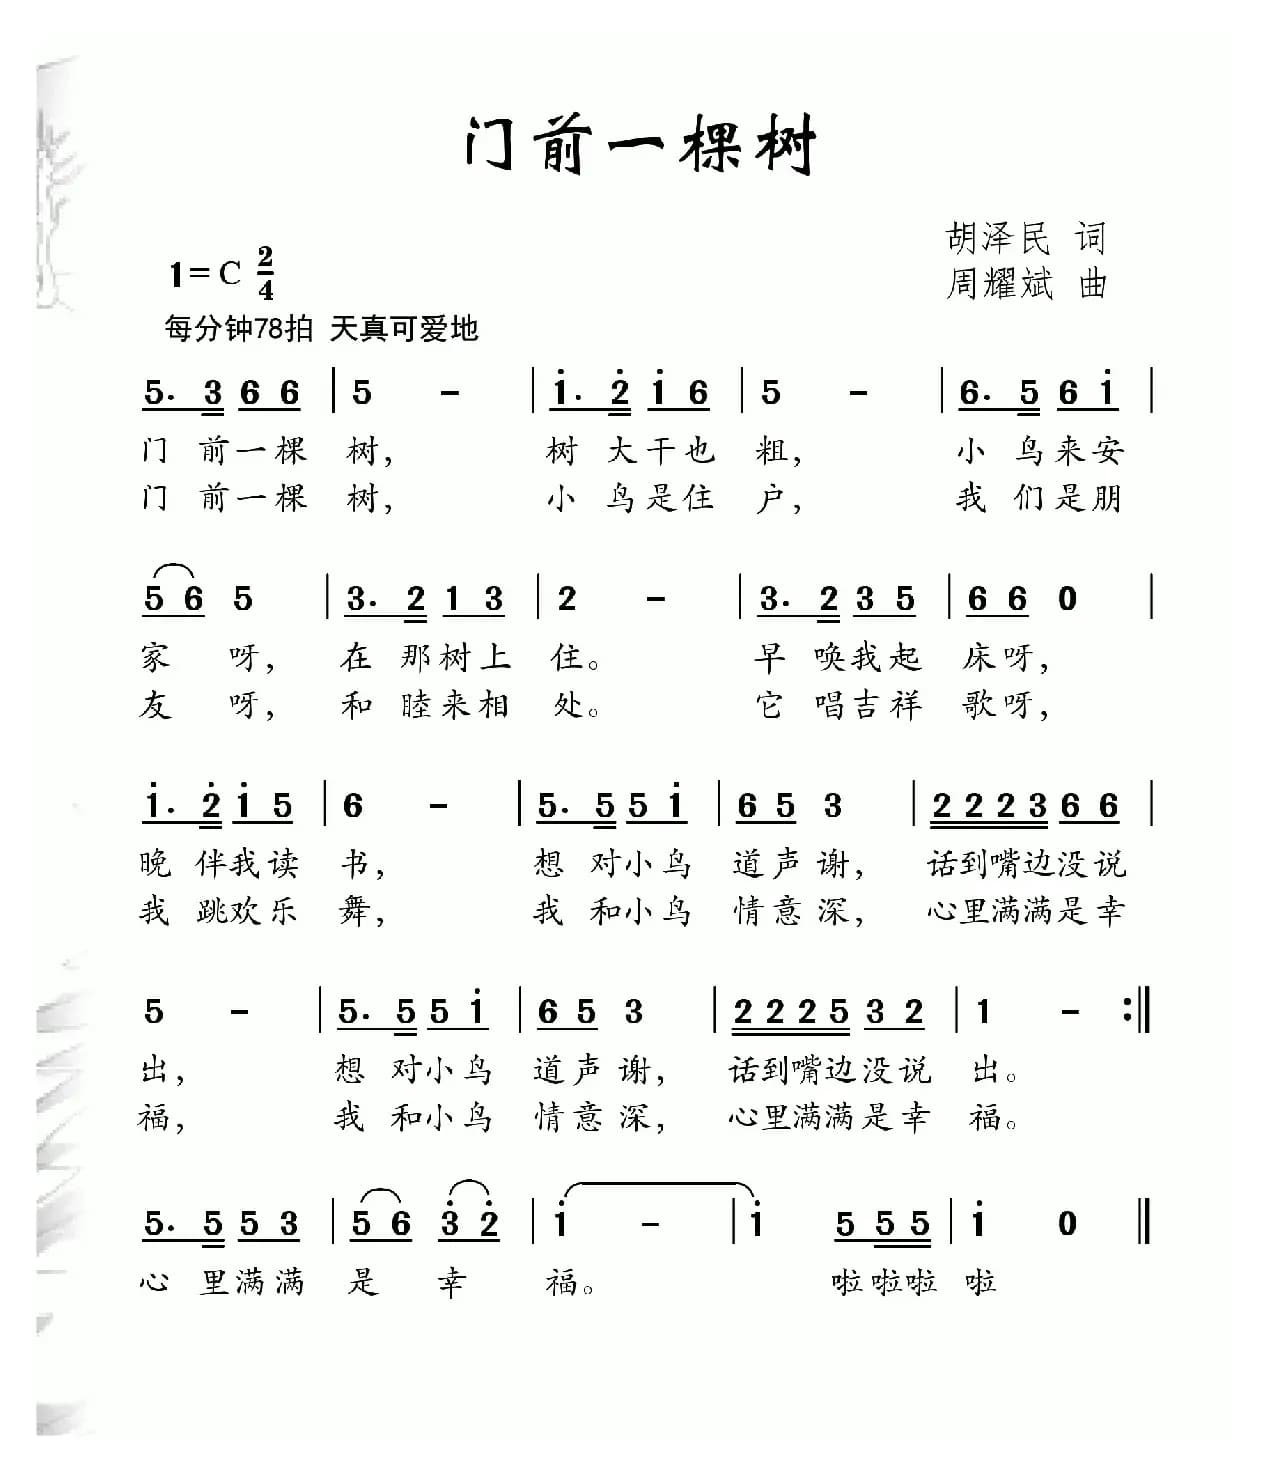 门前一棵树
胡泽民 词
1=C 2/4
周耀斌 曲
每分钟78拍 天真可爱地
5. 3 6 6 | 5 - | i. 2̇ i 6 | 5 - | 6. 5 6 i |
门 前一棵 树, 树 大干也 粗, 小 鸟来安
门 前一棵 树, 小 鸟是住 户, 我 们是朋
5 6 5 | 3. 2 1 3 | 2 - | 3. 2 3 5 | 6 6 0 |
家 呀, 在 那树上 住。 早 唤我起 床呀,
友 呀, 和 睦来相 处。 它 唱吉祥 歌呀,
i. 2̇ i 5 | 6 - | 5. 5 5 i | 6 5 3 | 2 2 2 3 6 6 |
晚 伴我读 书, 想 对小鸟 道声谢, 话到嘴边没说
我 跳欢乐 舞, 我 和小鸟 情意深, 心里满满是幸
5 - | 5. 5 5 i | 6 5 3 | 2 2 2 5 3 2 | 1 - :||
出, 想 对小鸟 道声谢, 话到嘴边没说 出。
福, 我 和小鸟 情意深, 心里满满是幸 福。
5. 5 5 3 | 5 6 3̇ 2̇ | i - | i 5 5 5 | i 0 ||
心 里满满 是 幸 福。 啦啦啦 啦